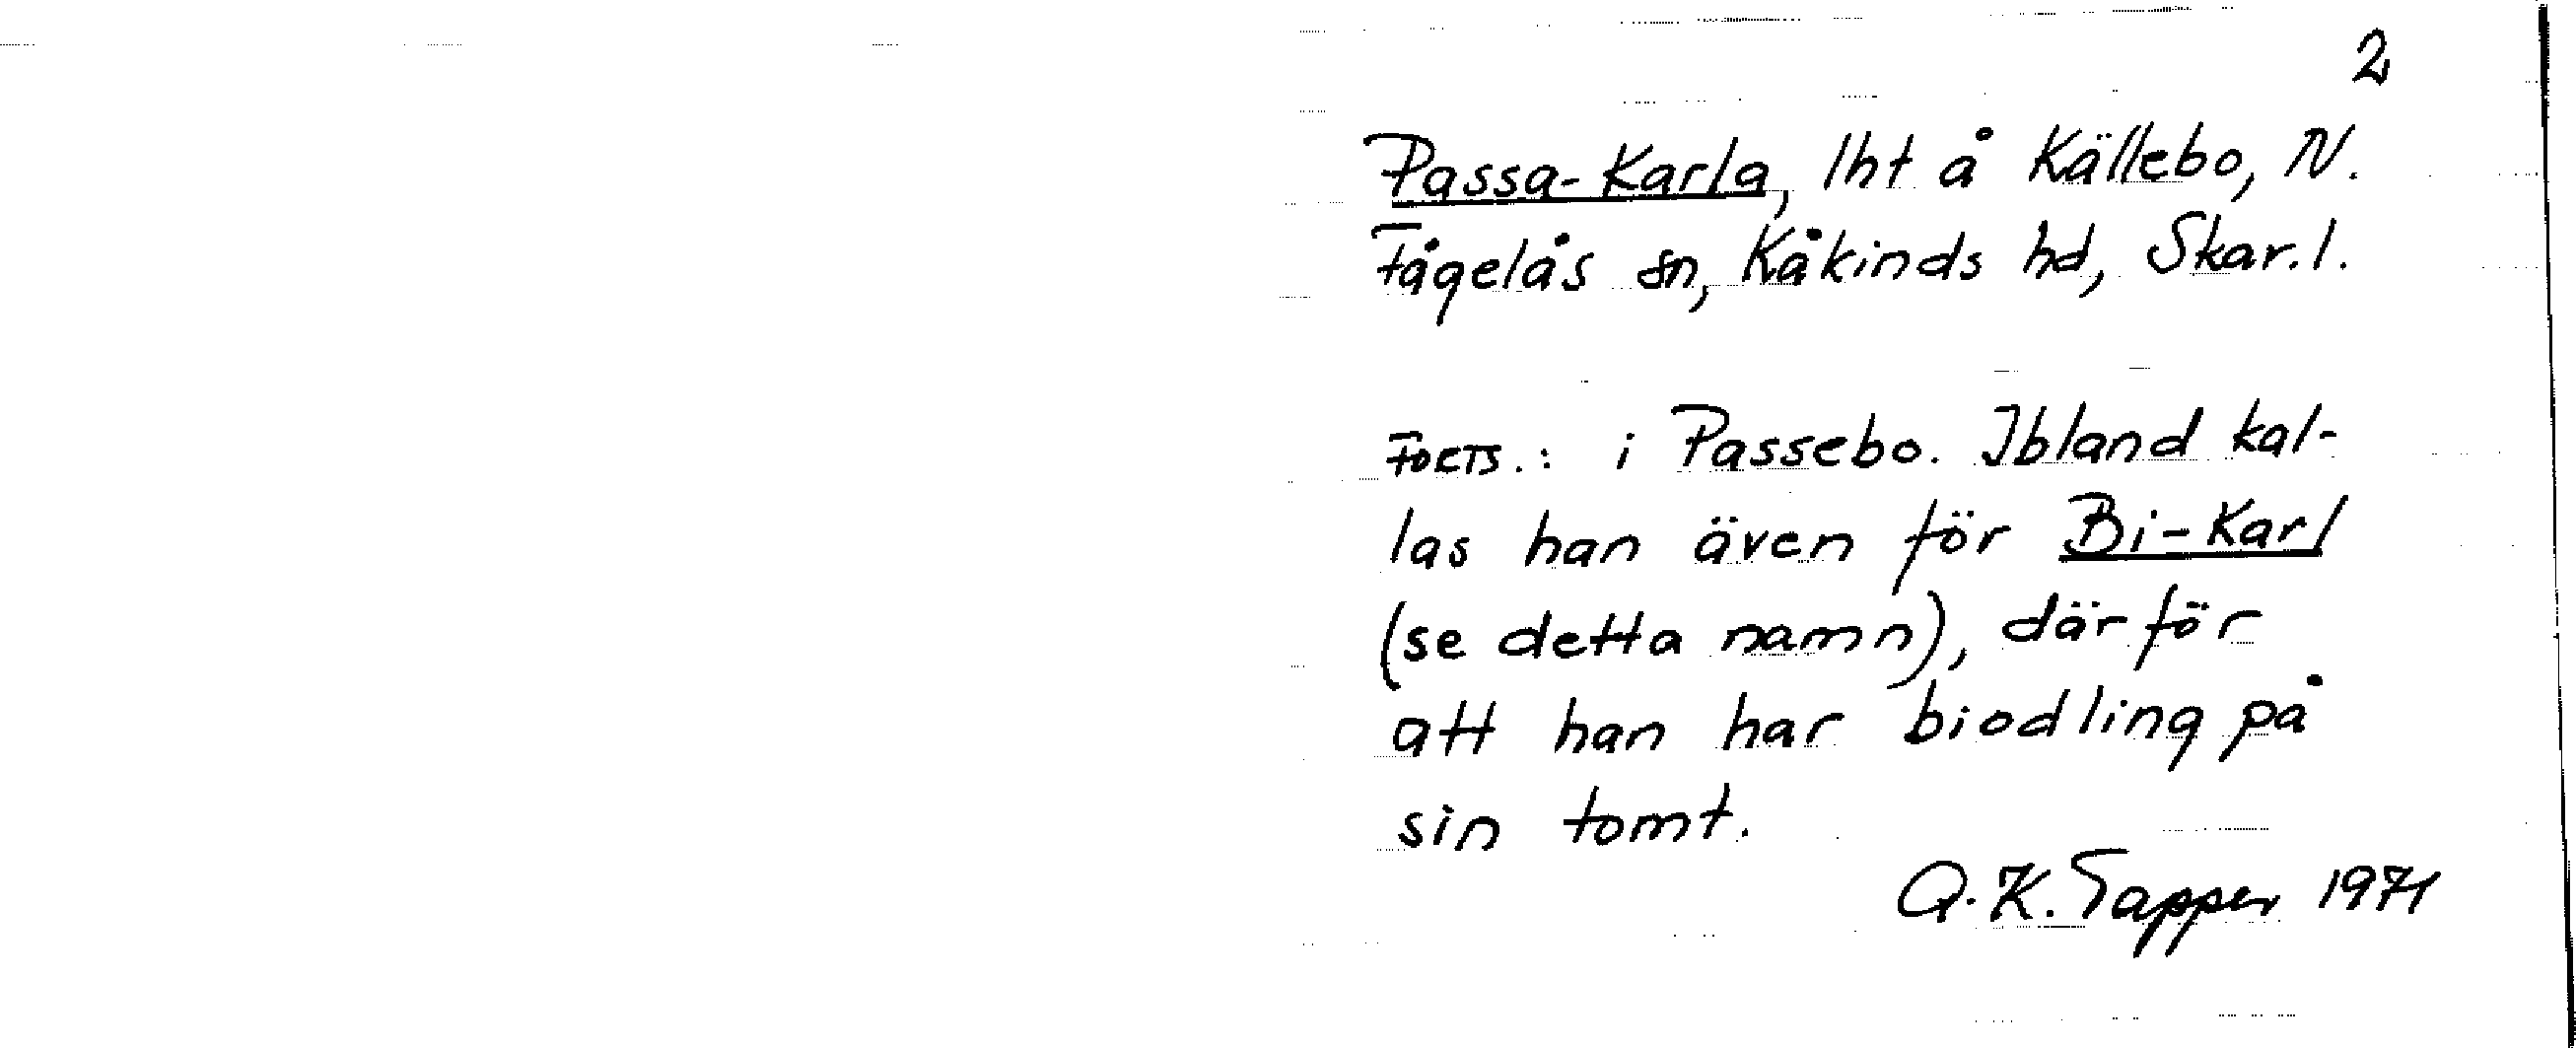 2
Passa-Karla, lht å Källebo, N.
Fågelås sn, Kåkinds hd, Skar.l.
FORTS.: i Passebo. Ibland kal-
las han även för Bi-Karl
(se detta namn), därför
att han har biodling på
sin tomt.
A.K. Tapper 1971